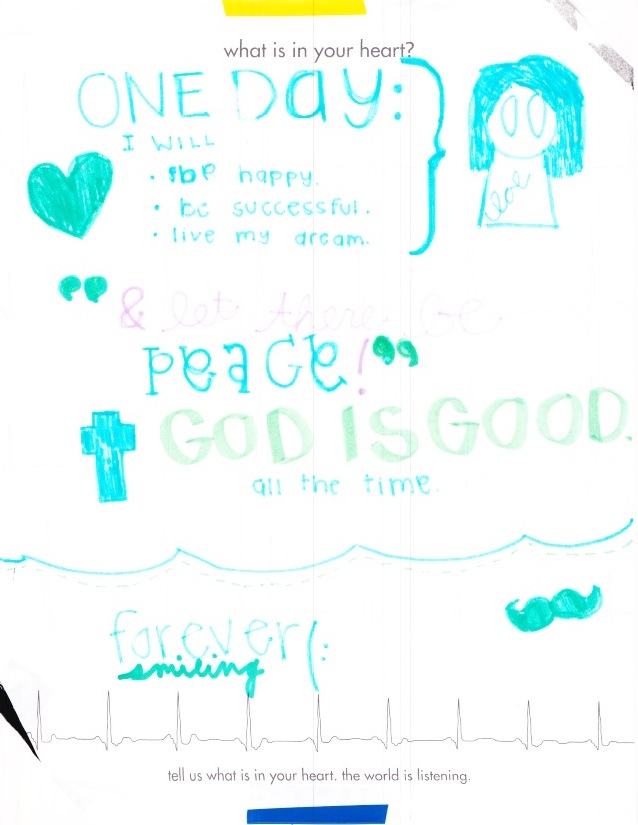 what is in your heart?
ONE Day:
I WILL
• be happy.
• be successful.
• live my dream.
“& let there be
PeaCe!”
GOD IS GOOD.
all the time.
forever (:
smiling
tell us what is in your heart. the world is listening.